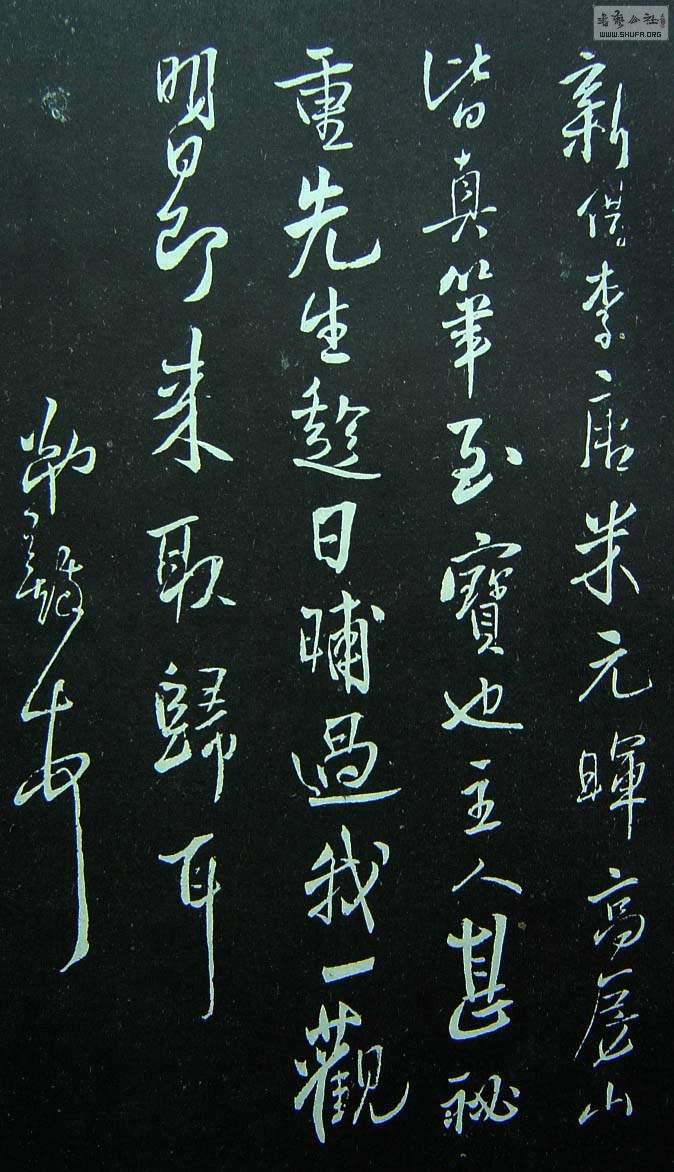 新借李唐米元暉高房山
皆真筆至寶也主人甚祕
重先生趁日晡過我一觀
明日即来取歸耳
勒
書藝公社
WWW.SHUFA.ORG